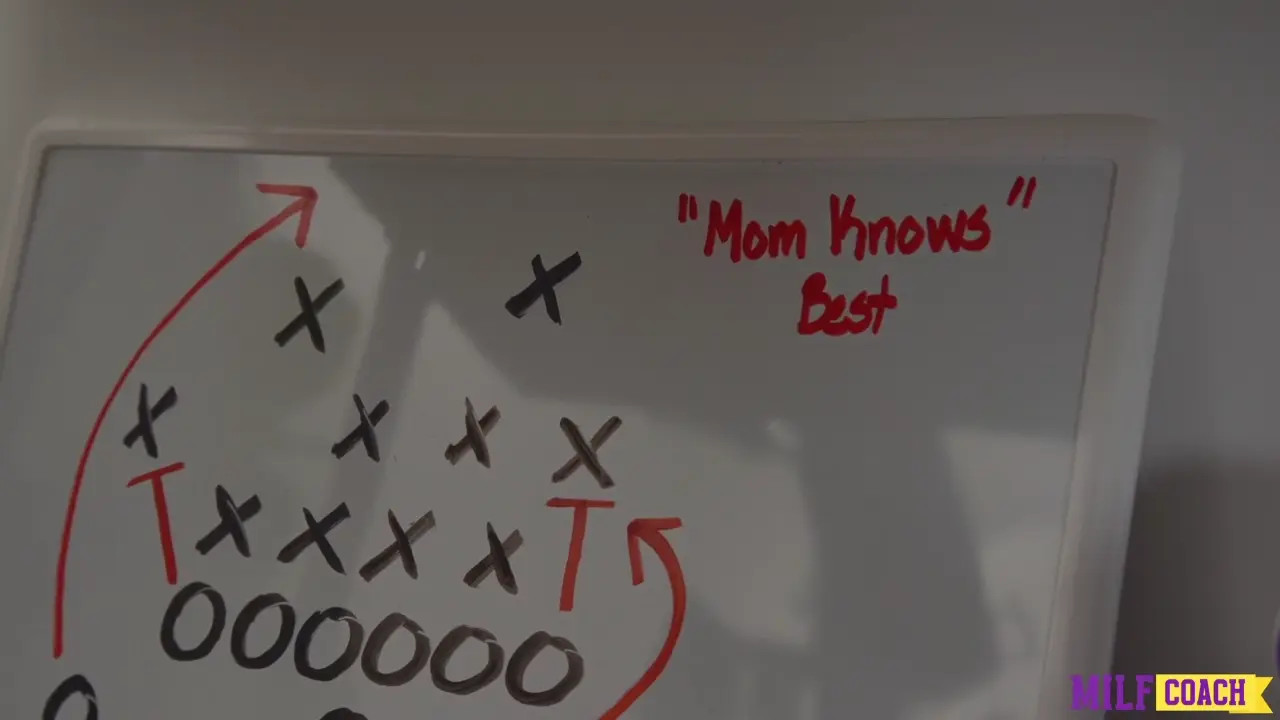 "Mom Knows"
Best
X X
X X X X
X X X X
OOOOOO
O
MILF COACH